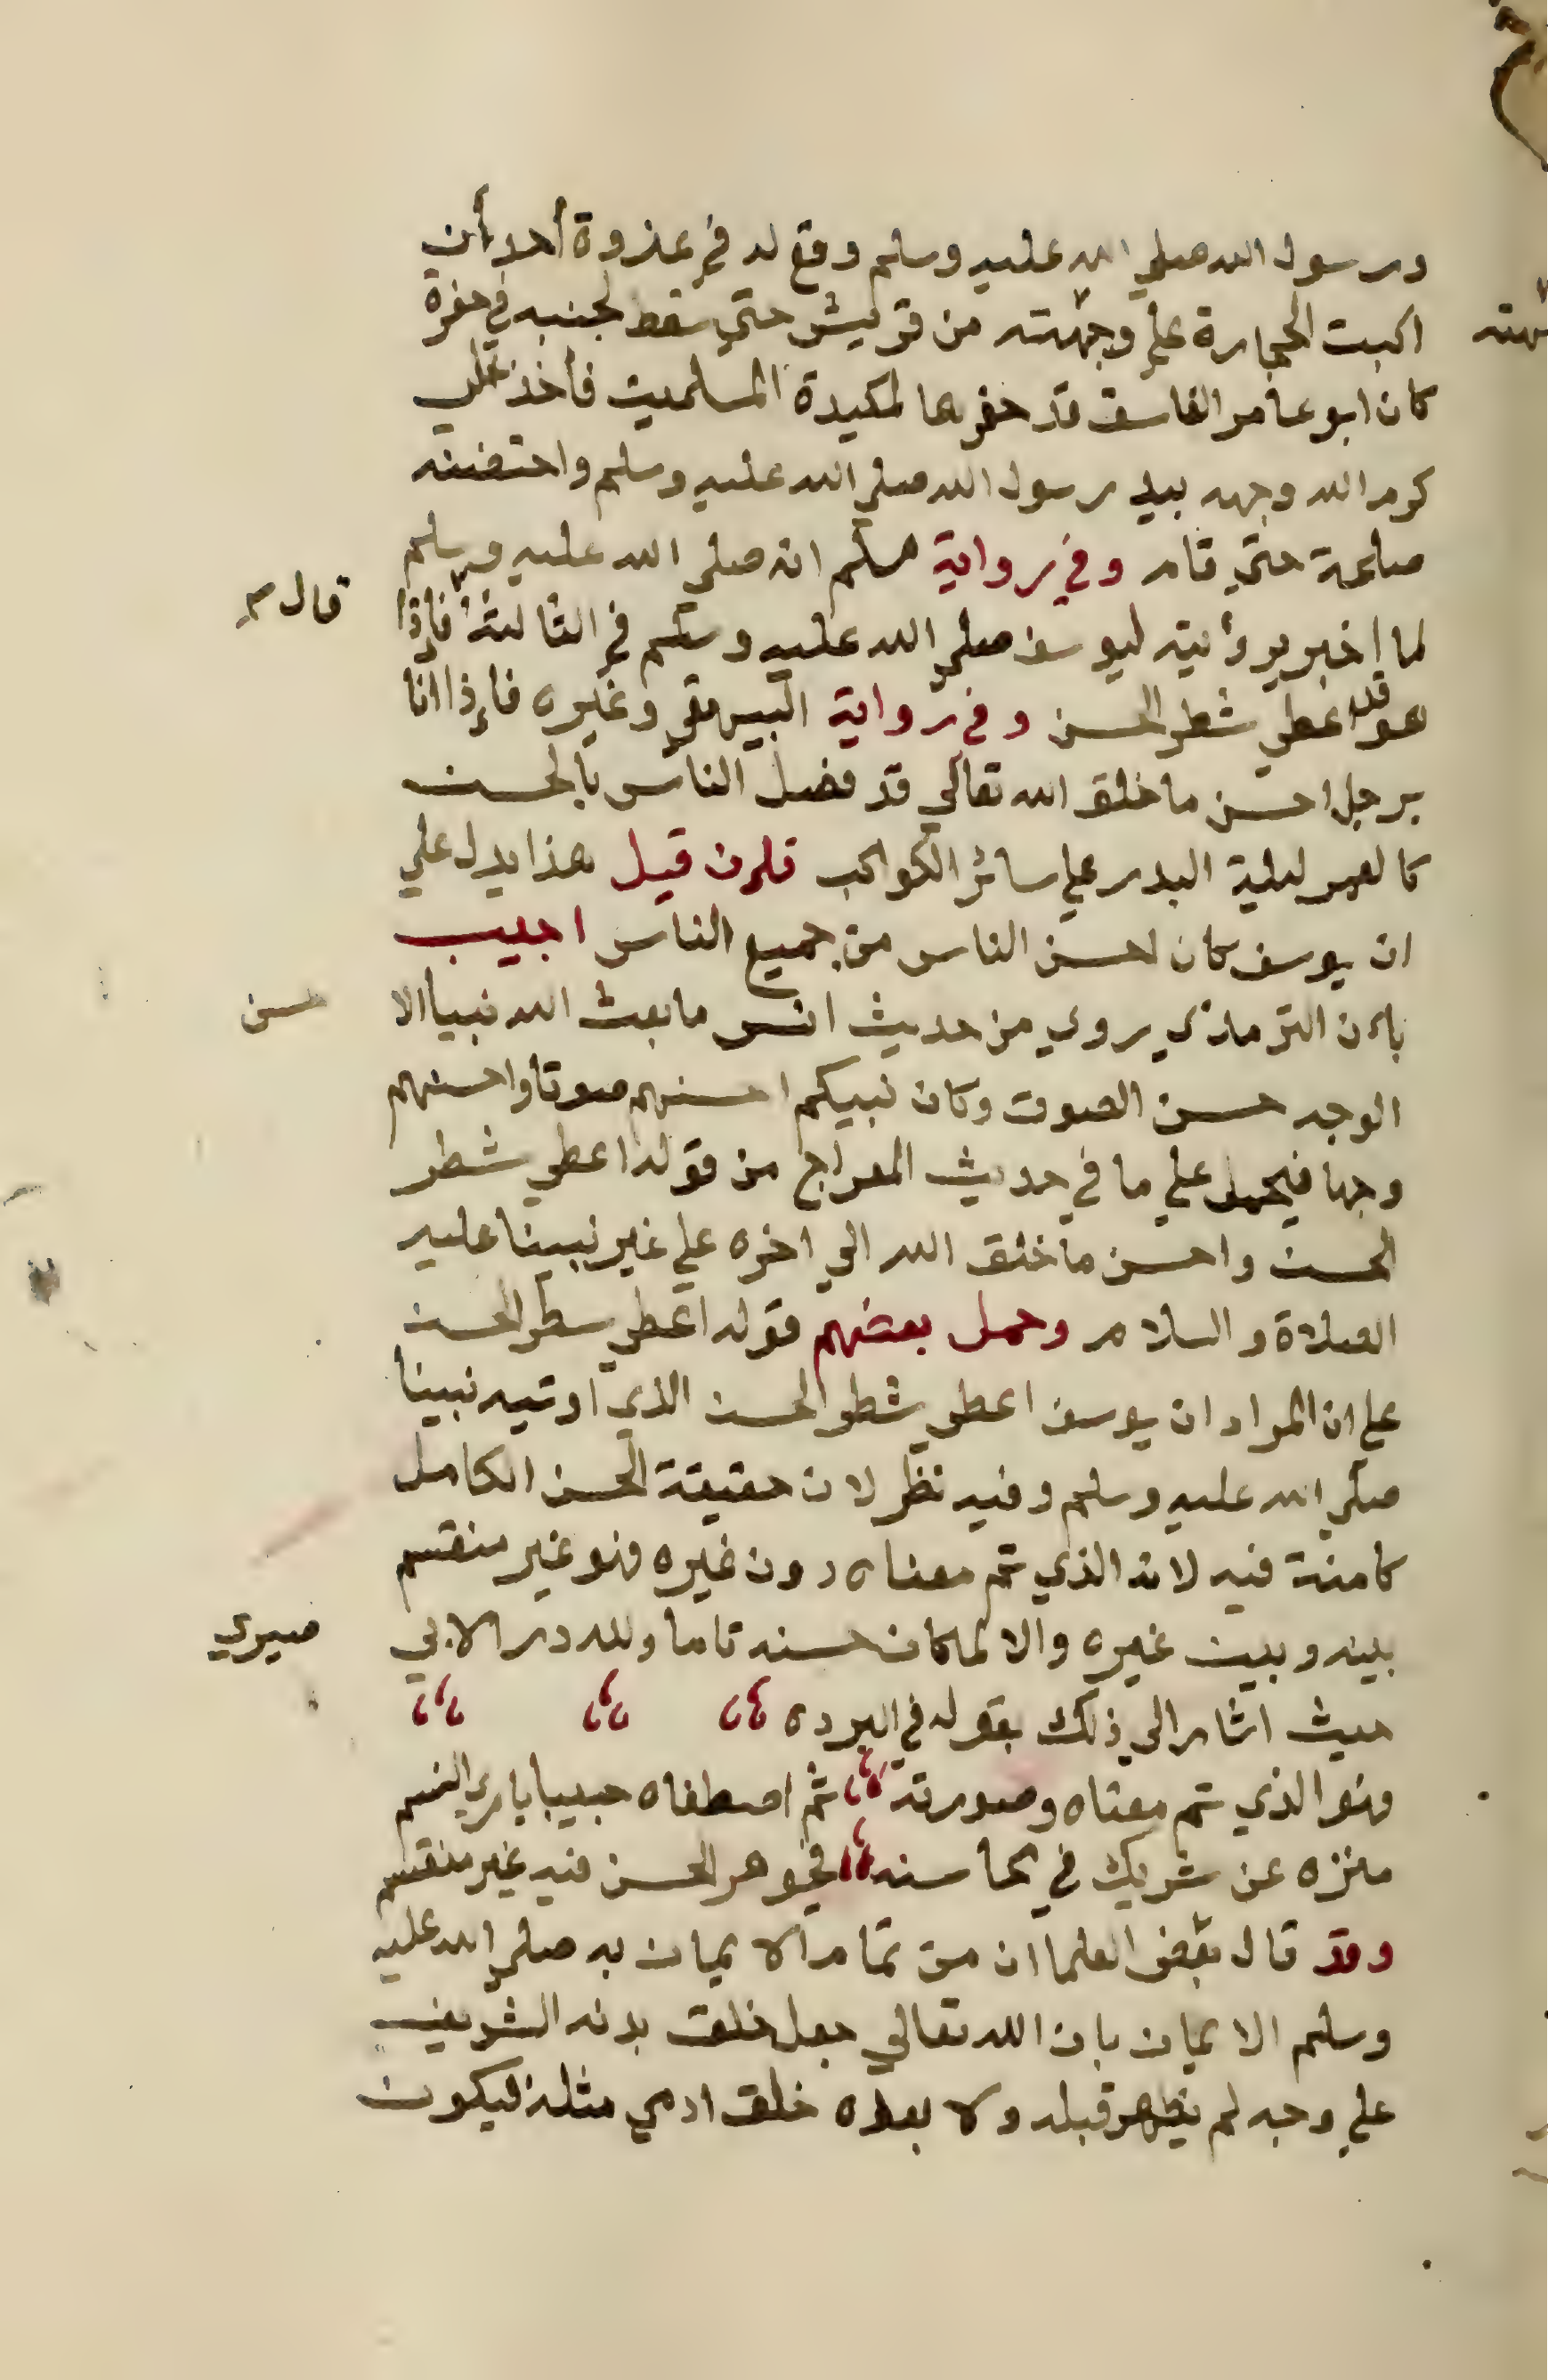 ورسول الله صلي الله عليه وسلم وقع له في غزوة أحد أن
اكبت الحجارة علي وجهته من قريش حتي سقط لجنبه في حفرة
كان ابو عامر الفاسق قد حفرها لمكيدة المسلمين فأخذ علي
كرم الله وجهه بيد رسول الله صلي الله عليه وسلم واحتضنه
طلحة حتي قام وفي رواية مسلم انه صلي الله عليه وسلم
قال
لما اخبر برؤيته ليوسف صلي الله عليه وسلم في الثالثة فإذا
هو قد اعطي شطر الحسن وفي رواية البيهقي وغيره فإذا انا
برجل احسن ما خلق الله تعالي قد فضل الناس بالحسن
كالقمر ليلة البدر علي سائر الكواكب فإن قيل هذا يدل علي
ان يوسف كان احسن الناس من جميع الناس اجيب
بإن الترمذي روي من حديث انس ما بعث الله نبيا الا
حسن
الوجه حسن الصوت وكان نبيكم احسنهم صوتا واحسنهم
وجها فيحمل علي ما في حديث المعراج من قوله اعطي شطر
الحسن واحسن ما خلق الله الي اخره علي غير نبينا عليه
الصلاة والسلام وحمل بعضهم قوله اعطي سطر الحسن
علي ان المراد ان يوسف اعطي شطر الحسن الذي اوتيه نبينا
صلي الله عليه وسلم وفيه نظر لان حقيقة الحسن الكامل
كامنة فيه لانه الذي تم معناه دون غيره فهو غير منقسم
بينه وبين غيره والا لما كان حسنه تاما ولله در الابي
صيري
حيث اشار الي ذلك بقوله في البرده
فهو الذي تم معناه وصورته ثم اصطفاه حبيبا باري النسم
منزه عن شريك في محاسنه فجوهر الحسن فيه غير منقسم
وقد قال بعض العلما ان من تمام الايمان به صلي الله عليه
وسلم الايمان بان الله تعالي جعل خلق بدنه الشريف
علي وجه لم يظهر قبله ولا بعده خلق ادمي مثله ليكون